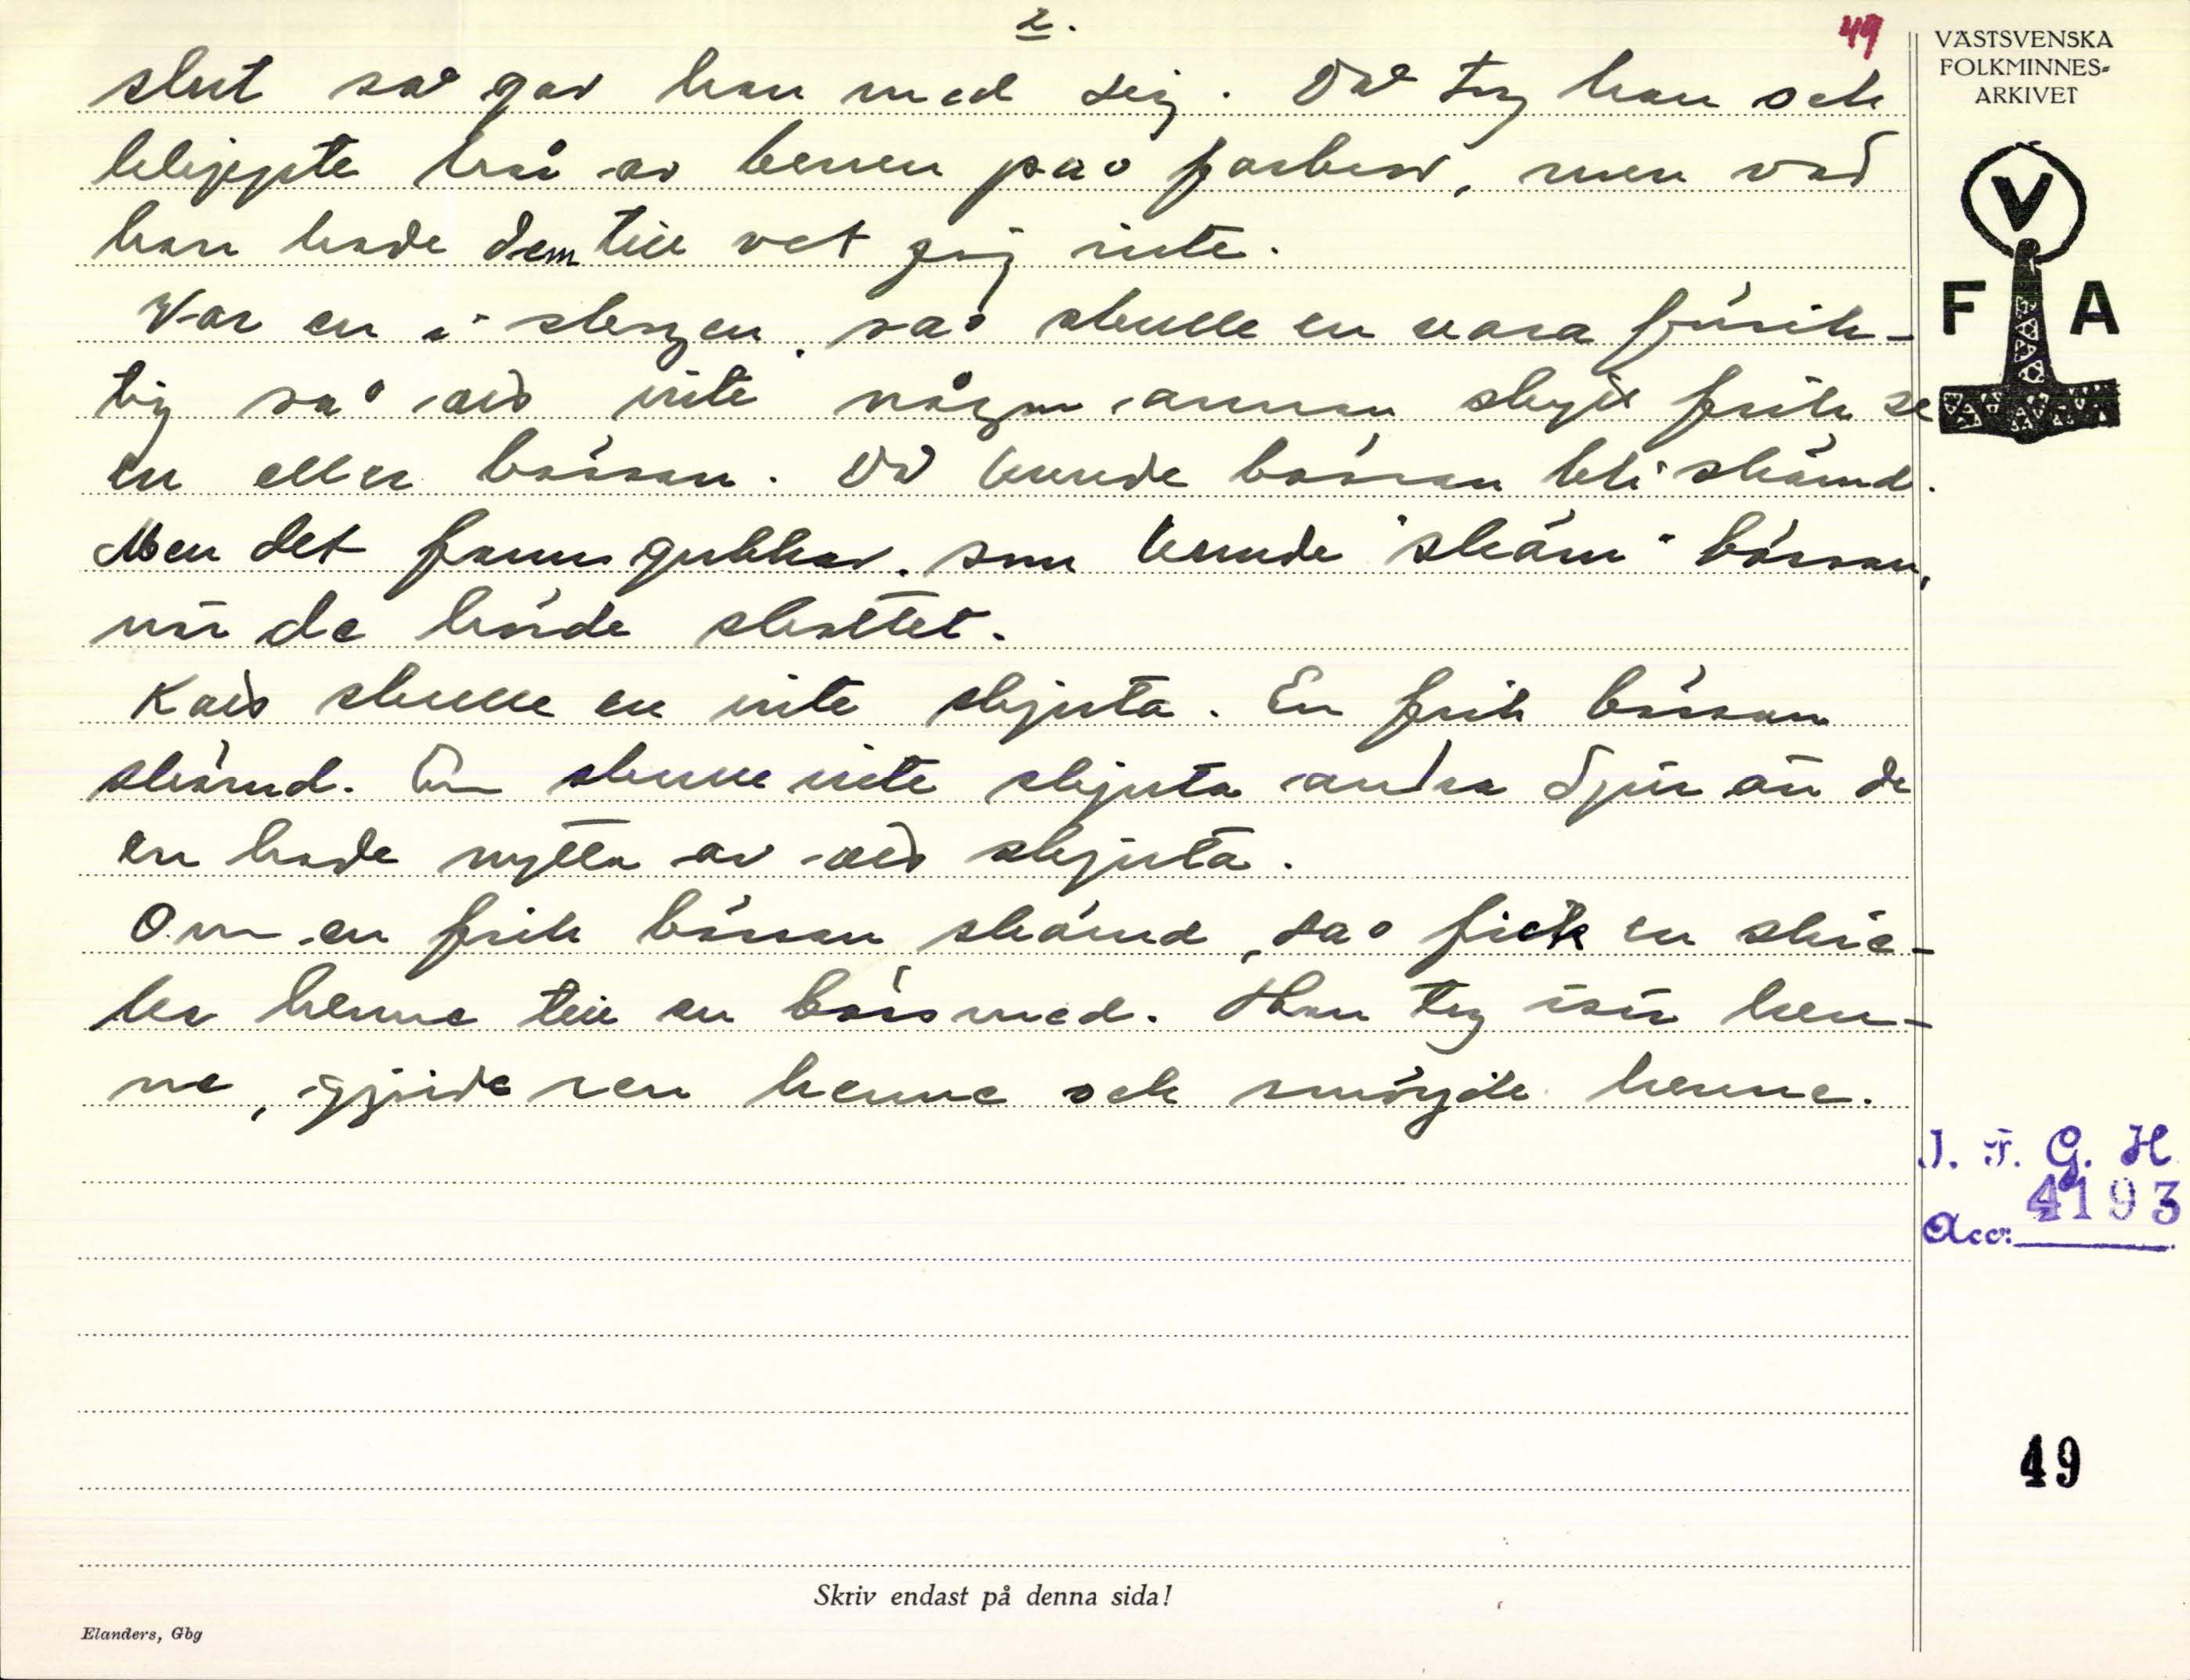 2.
49
VÄSTSVENSKA
FOLKMINNES-
ARKIVET
slut så gav han med sej. Då tog han och
klippte hår av benen på haren, men vad
han hade dem till vet jaj inte.
V
F A
Var en i skogen, så skulle en vara försik-
tig så att inte någon annan skjöt fick se
en eller bössan. Då kunde bössan bli skämd.
Men det fanns gubbar, som kunde "skäm" bössan,
när de hörde skottet.
Kats skulle en inte skjuta. En fick bössan
skämd. En skulle inte skjuta andra djur än de
en hade nytta av att skjuta.
Om en fick bössan skämd, så fick en skic-
ka henne till en bössmed. Han tog isär hen-
ne, gjorde ren henne och smörjde henne.
I. F. G. H
4193
Acc:
49
Skriv endast på denna sida!
Elanders, Gbg